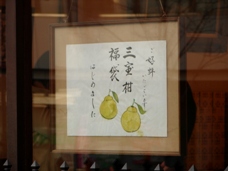 好評
三宝柑
福袋
はじめました